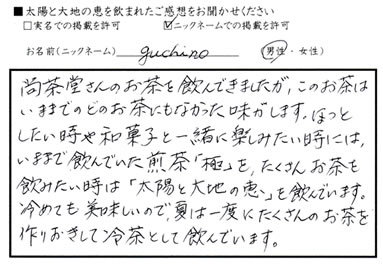 ■太陽と大地の恵を飲まれたご感想をお聞かせください
□実名での掲載を許可 ☑ニックネームでの掲載を許可
お名前(ニックネーム) guchino (男性・女性)
尚茶堂さんのお茶を飲んできましたが、このお茶は
いままでのどのお茶にもなかった味がします。ほっと
したい時や和菓子と一緒に楽しみたい時には、
いままで飲んでいた煎茶「極」を、たくさんお茶を
飲みたい時は「太陽と大地の恵」を飲んでいます。
冷めても美味しいので、夏は一度にたくさんのお茶を
作りおきして冷茶として飲んでいます。